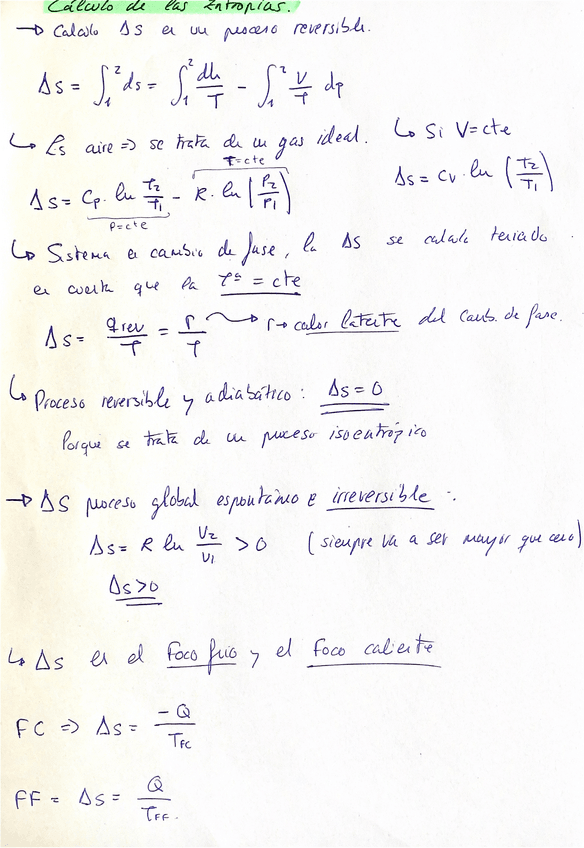 Cálculo de las Entropias.
→ Calculo Δs en un proceso reversible.
Δs = ∫₁² ds = ∫₁² dh/T - ∫₁² V/T dp
↳ Es aire => se trata de un gas ideal.
Δs = Cp. ln T2/T1 - R. ln (P2/P1)
P=cte
T=cte
↳ Si V=cte
Δs = Cv. ln (T2/T1)
↳ Sistema en cambio de fase, la Δs se calcula teniendo
en cuenta que la Tª = cte
Δs = qrev/T = r/T → r → calor latente del camb. de fase.
↳ Proceso reversible y adiabático: Δs = 0
Porque se trata de un proceso isoentrópico
→ ΔS proceso global espontáneo e irreversible :.
Δs = R ln V2/V1 > 0 (siempre va a ser mayor que cero)
Δs>0
↳ Δs en el foco frio y el foco caliente
FC => Δs = -Q/TFC
FF = Δs = Q/TFF.